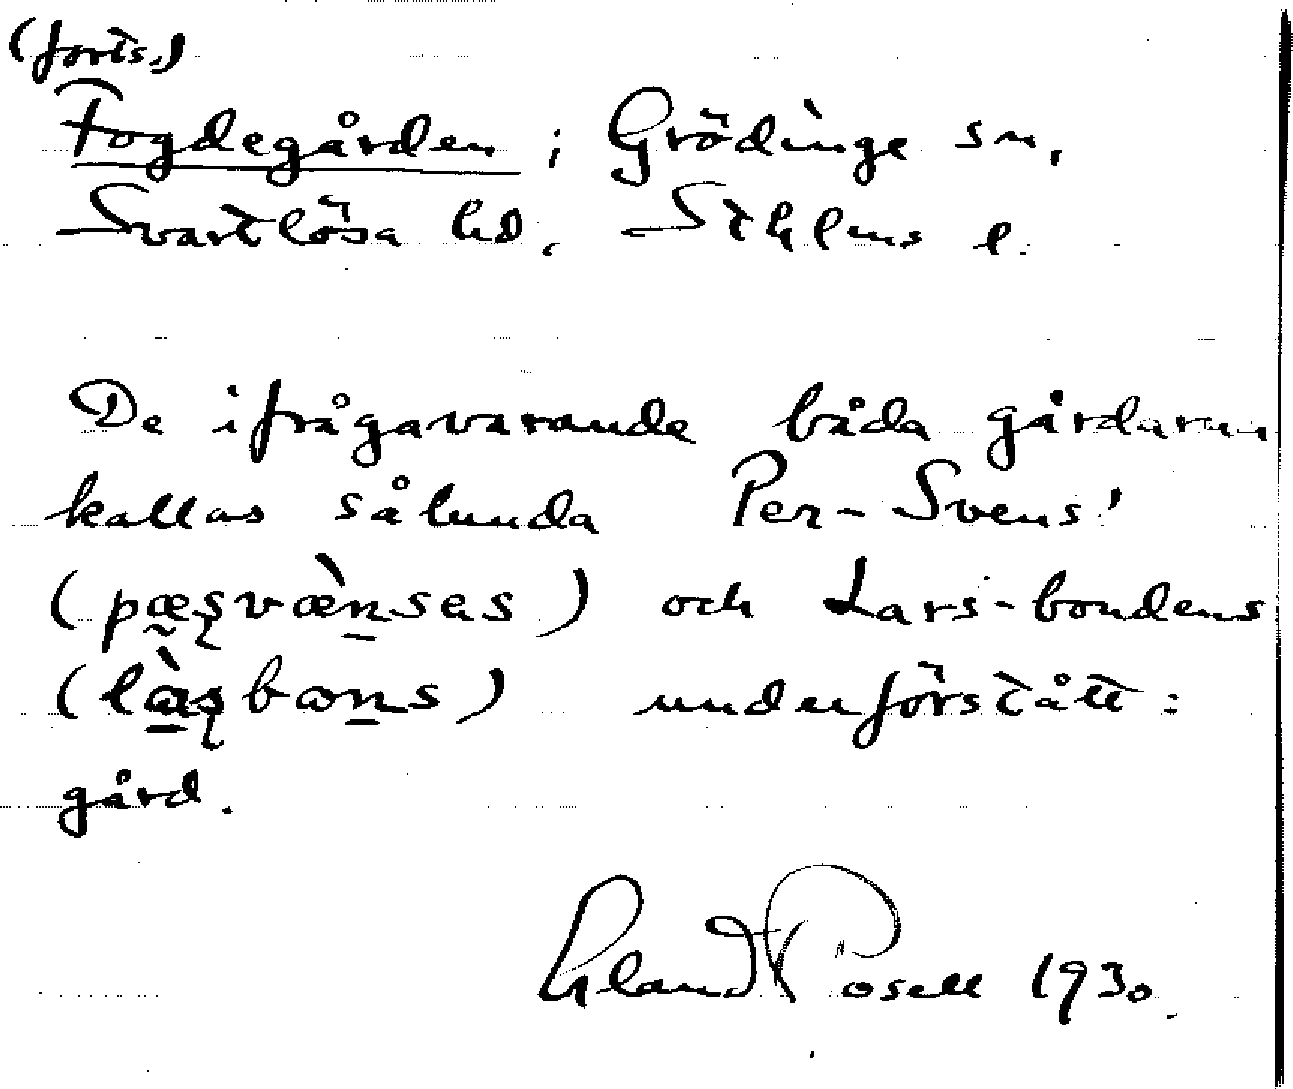 (forts.)
Fogdegården i Grödinge sn,
Svartlösa hd, Sthlms l.
De ifrågavarande båda gårdarna
kallas sålunda Per-Svens'
(pæʂvæ̀nsas) och Lars-bondens
(là̱ʂbωṉs) underförstått:
gård.
Erland Rosell 1930.